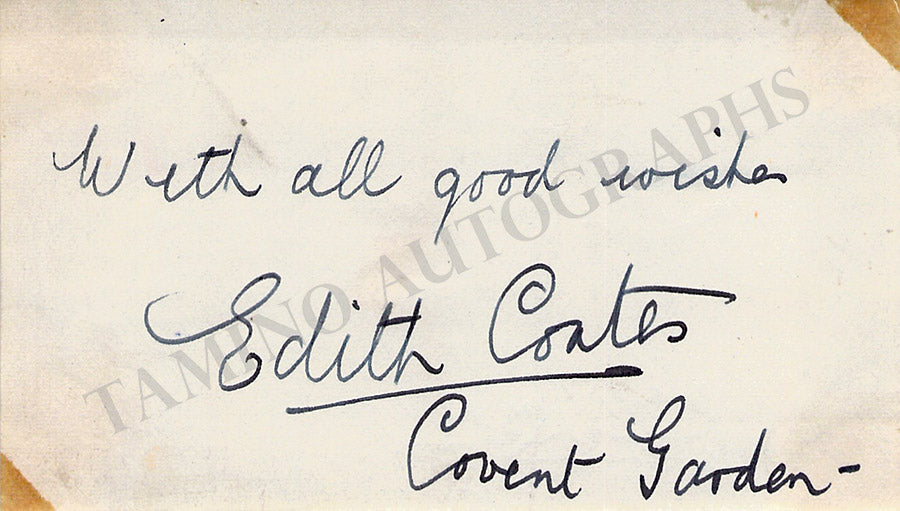 With all good wishes
Edith Coates
Covent Garden -
TAMINO AUTOGRAPHS